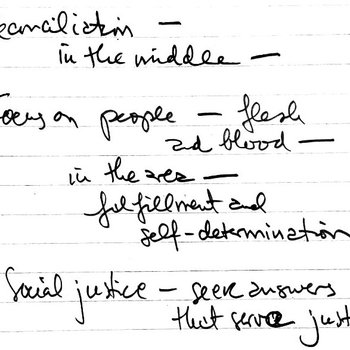 reconciliation —
in the middle —
Focus on people — flesh
and blood —
in the area —
fulfillment and
self-determination
Social justice — seek answers
that serve just